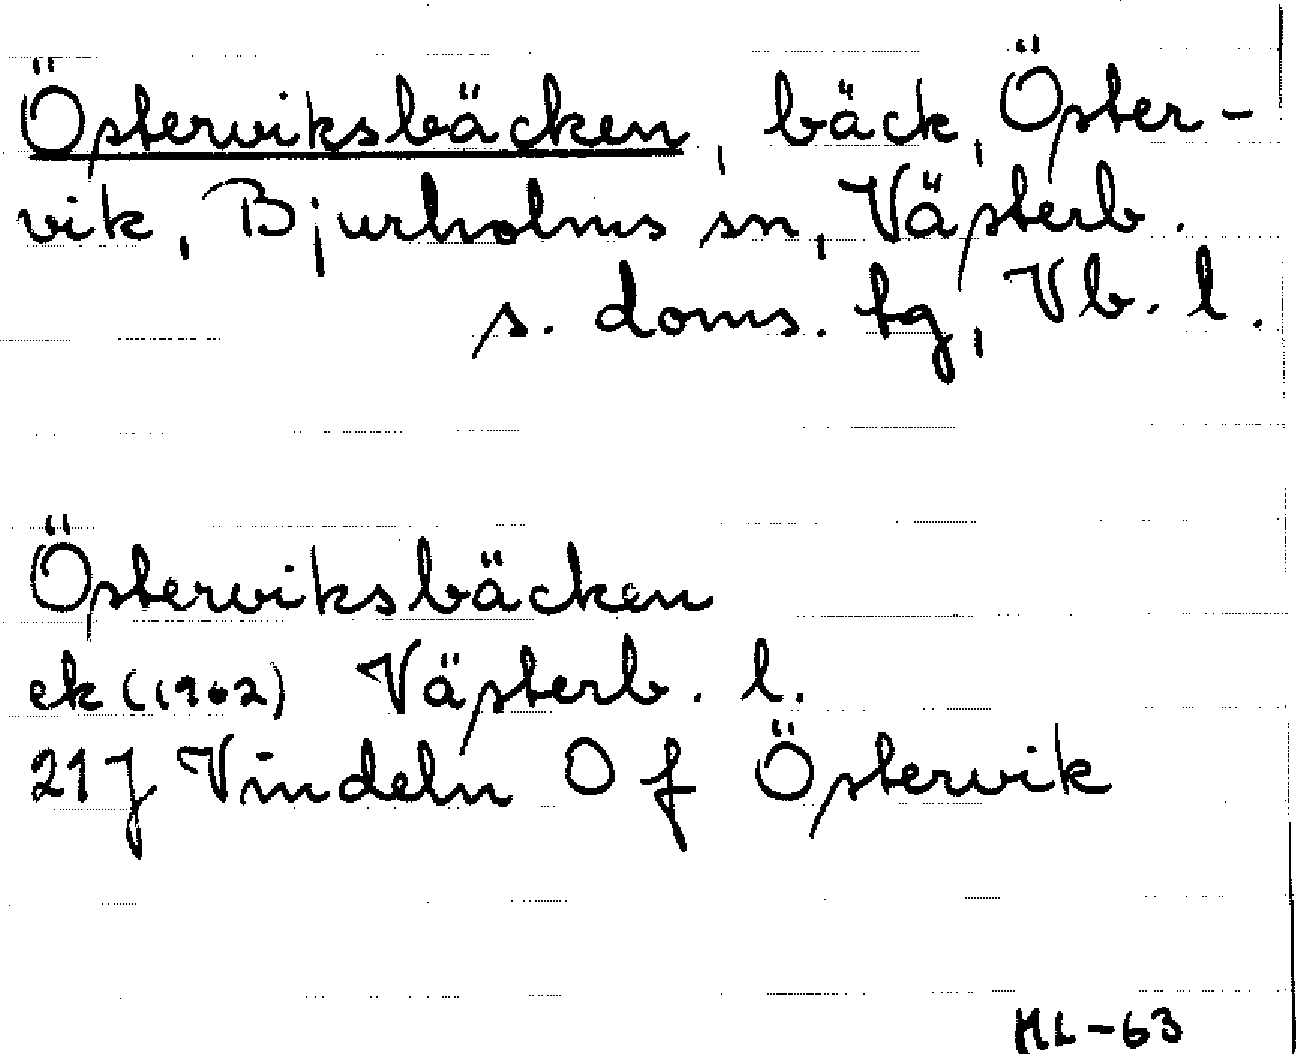 Österviksbäcken, bäck, Öster-
vik, Bjurholms sn, Västerb.
s. doms. tg, Vb. l.
Österviksbäcken
ek (1962) Västerb. l.
21J Vindeln 0 f Östervik
HL-63